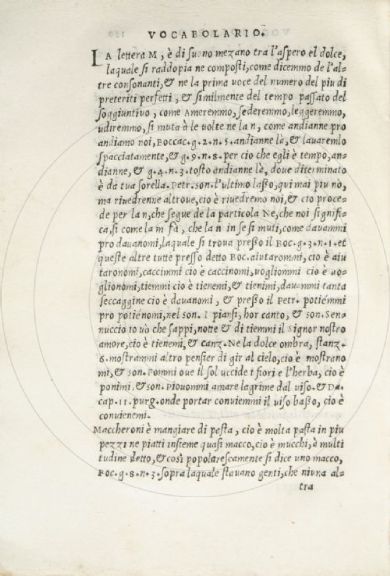 VOCABOLARIO.
LA lettera M, è di suono mezano tra l'aspero el dolce,
laquale si raddopia ne composti, come dicemmo de l'al-
tre consonanti, & ne la prima voce del numero del piu di
preteriti perfetti, & similmente del tempo passato del
soggiuntivo, come Ameremmo, sederemmo, leggeremmo,
udiremmo, si muta à le volte ne la n, come andianne pro
andiamo noi, Boccac.g.2.n.5. andianne là, & lavaremlo
spacciatamente, & g.9.n.8. per cio che egli è tempo, an-
dianne, & g.4.n.3. tosto andianne là, doue diterminato
è da tua sorella. Petr. son. l'ultimo lasso, qui mai piu nò,
ma riuedrenne altroue, cio è riuedremo noi, & cio proce-
de per la n, che segue de la particola Ne, che noi signifi-
ca, sì come la m fà, che la n in se si muti, come dauammi
pro dauanomi, laquale si troua presso il Boc.g.3.n.1. et
queste altre tutte presso detto Boc. aiutarommi, cio è aiu
taronomi, caccimmi cio è caccinomi, vogliommi cio è vo-
glionomi, tiemmi cio è tienemi, & tienimi, dauammi tanta
seccaggine cio è dauanomi, & presso il Petr. potiemmi
pro potienomi, nel son. I piansi, hor canto, & son. Sen-
nuccio io vò che sappi, notte & di tiemmi il Signor nostro
amore, cio è tienemi, & canz. Ne la dolce ombra, stanz.
6. mostrammi altro pensier di gir al cielo, cio è mostrano
mi, & son. Pommi oue il sol uccide i fiori e l'herba, cio è
ponimi. & son. Piouommi amare lagrime dal viso. & Da.
cap.11. purg. onde portar conviemmi il viso basso, cio è
convienemi.
Maccheroni è mangiare di pesta, cio è molta pasta in piu
pezzi ne piatti insieme quasi macco, cio è mucchi, è multi
tudine detto, & così popolarescamente si dice uno macco,
Boc.g.8.n.3. sopra laquale stauano genti, che niuna al-
tra